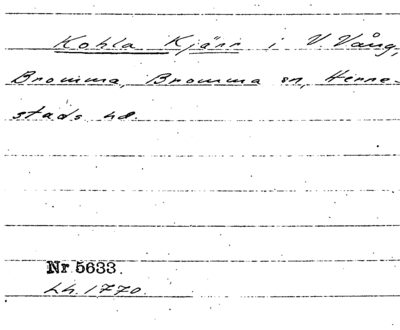 Kohla Kjärr i V. Vång,
Bromma, Bromma sn, Herre-
stads hd.
Nr 5633.
Lh. 1770.